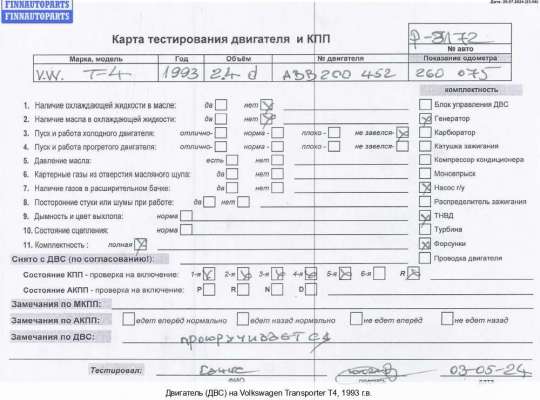 FINNAUTOPARTS
FINNAUTOPARTS
Дата: 29.07.2024
Карта тестирования двигателя и КПП
P-3172
№ авто
Марка, модель Год Объём № двигателя Показание одометра
V.W. T-4 1993 2.4 d ABB200 452 260 075
комплектность
1. Наличие охлаждающей жидкости в масле: да нет
2. Наличие масла в охлаждающей жидкости: да нет
3. Пуск и работа холодного двигателя: отлично- норма - плохо - не завелся-
4. Пуск и работа прогретого двигателя: отлично- норма - плохо - не завелся-
5. Давление масла: есть нет
6. Картерные газы из отверстия масляного щупа: да нет
7. Наличие газов в расширительном бачке: да нет
8. Посторонние стуки или шумы при работе: да нет
9. Дымность и цвет выхлопа: норма
10. Состояние сцепления: норма
11. Комплектность : полная
Блок управления ДВС
Генератор
Карбюратор
Катушка зажигания
Компрессор кондиционера
Моновпрыск
Насос г/у
Распределитель зажигания
ТНВД
Турбина
Форсунки
Проводка двигателя
Снято с ДВС (по согласованию!):
Состояние КПП - проверка на включение: 1-я 2-я 3-я 4-я 5-я 6-я R
Состояние АКПП - проверка на включение: P R N D
Замечания по МКПП:
Замечания по АКПП: едет вперёд нормально едет назад нормально не едет вперёд не едет назад
Замечания по ДВС: прокручивается
Тестировал: 03-05-24
Двигатель (ДВС) на Volkswagen Transporter T4, 1993 г.в.